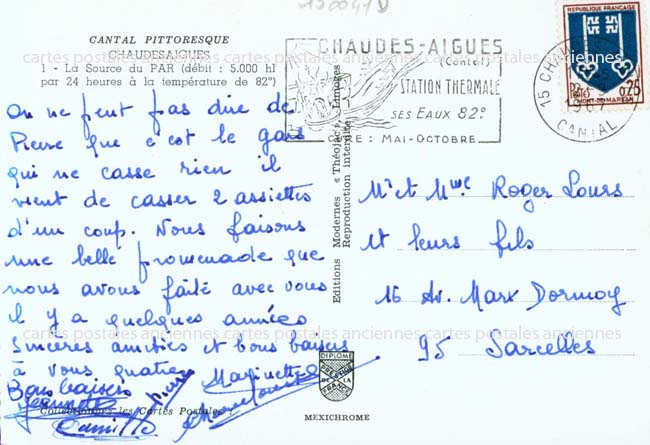 130041 D
CANTAL PITTORESQUE
CHAUDESAIGUES
1 - La Source du PAR (débit : 5.000 hl
par 24 heures à la température de 82°)
On ne peut pas dire de
Pierre que c'est le gars
qui ne casse rien il
vient de casser 2 assiettes
d'un coup. Nous faisons
une belle promenade que
nous avons faite avec vous
il y a quelques années
Sincères amitiés et bons baisers
à vous quatre
Bons baisers
Pierre
Maginette
Camille
Collectionnez les Cartes Postales
Editions Modernes « Théojac », Limoges
Reproduction Interdite
DIPLOME
PRESTIGE
DE LA
FRANCE
MEXICHROME
CHAUDES-AIGUES
(Cantal)
STATION THERMALE
SES EAUX 82°
: MAI-OCTOBRE
15 CHAUDES
1967
CANTAL
REPUBLIQUE FRANÇAISE
0,25
MONT-DE-MARSAN
Mr et Mme Roger Lours
et leurs fils
16 Av. Marx Dormoy
95 Sarcelles
cartes postales anciennes cartes postales anciennes cartes postales
cartes postales anciennes cartes postales anciennes cartes postales